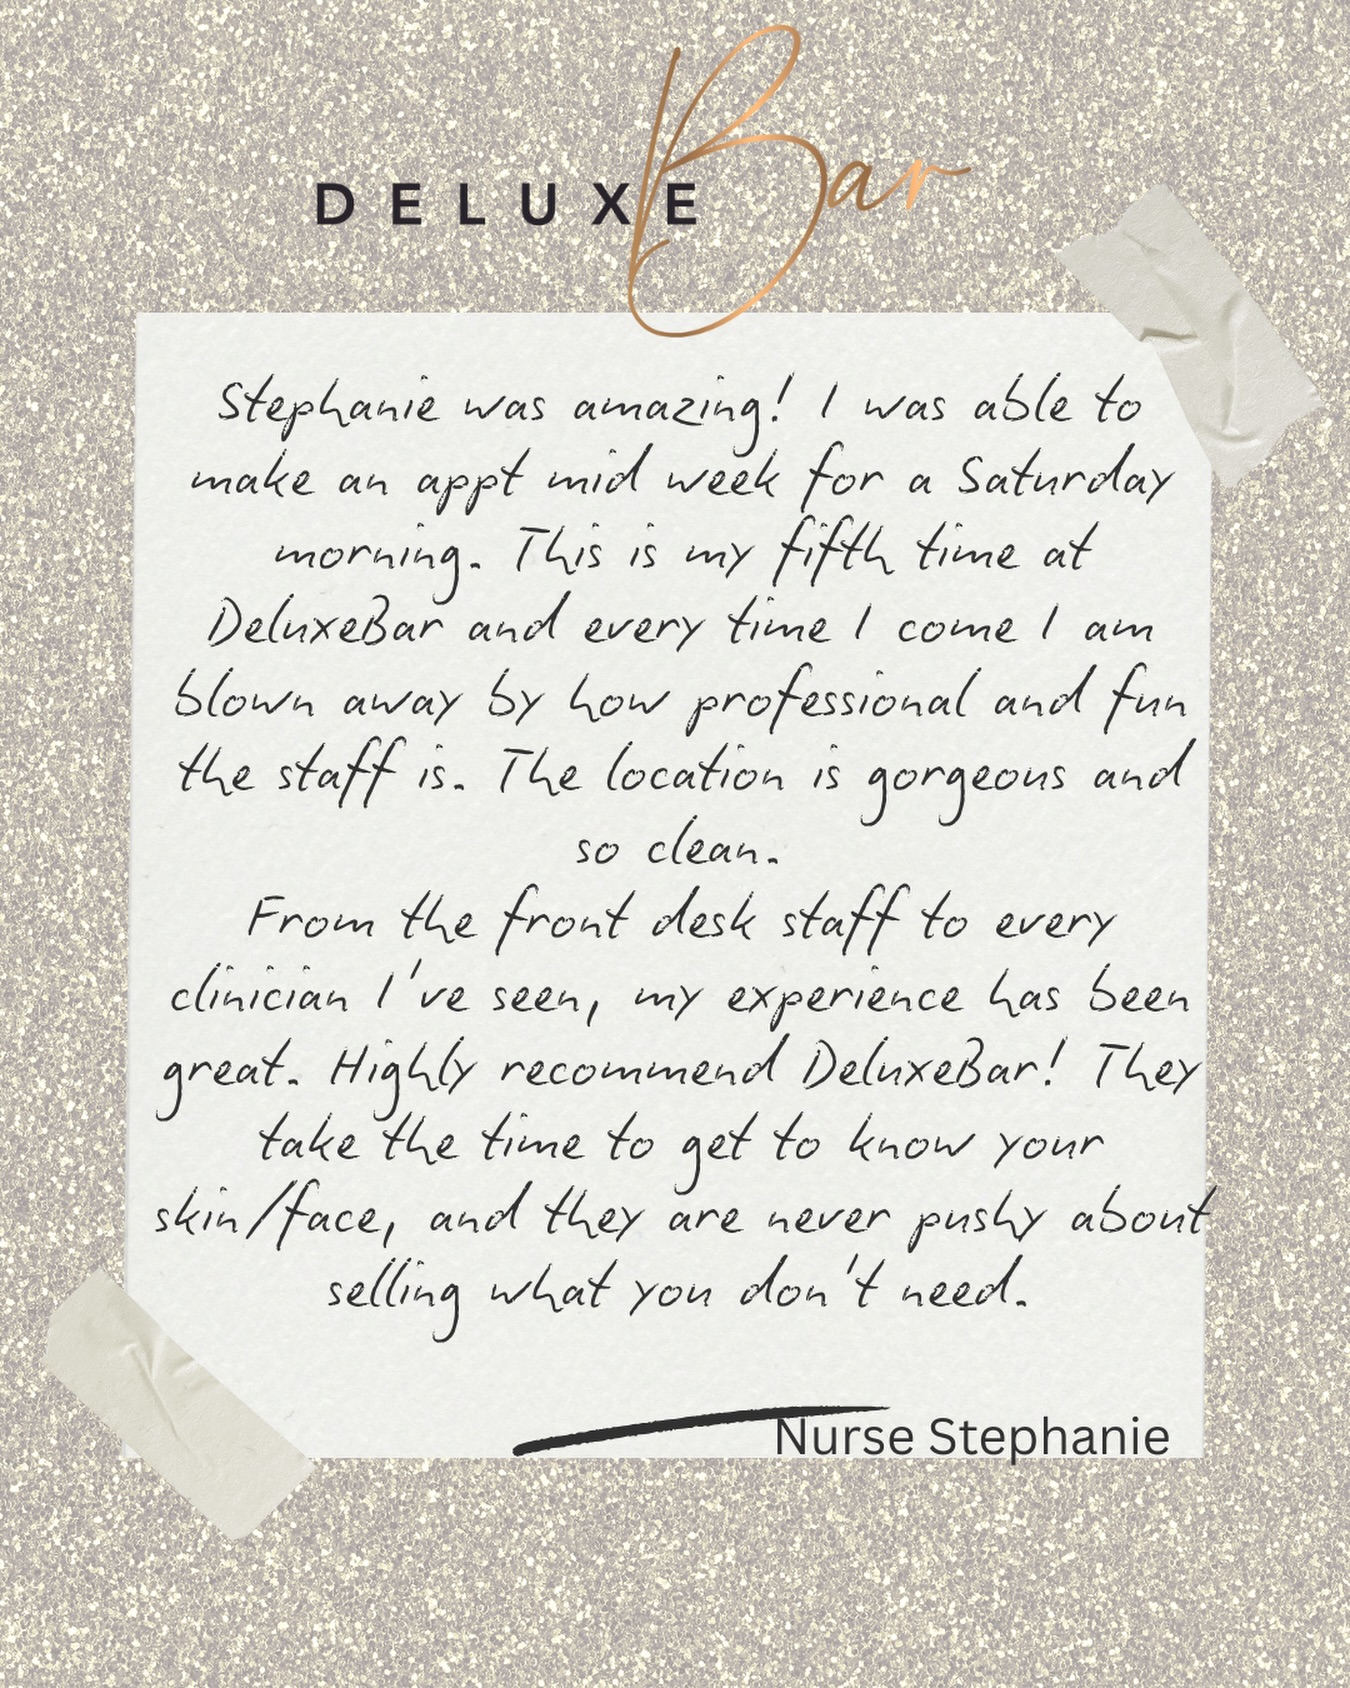 DELUXE Bar
Stephanie was amazing! I was able to
make an appt mid week for a Saturday
morning. This is my fifth time at
DeluxeBar and every time I come I am
blown away by how professional and fun
the staff is. The location is gorgeous and
so clean.
From the front desk staff to every
clinician I've seen, my experience has been
great. Highly recommend DeluxeBar! They
take the time to get to know your
skin/face, and they are never pushy about
selling what you don't need.
Nurse Stephanie